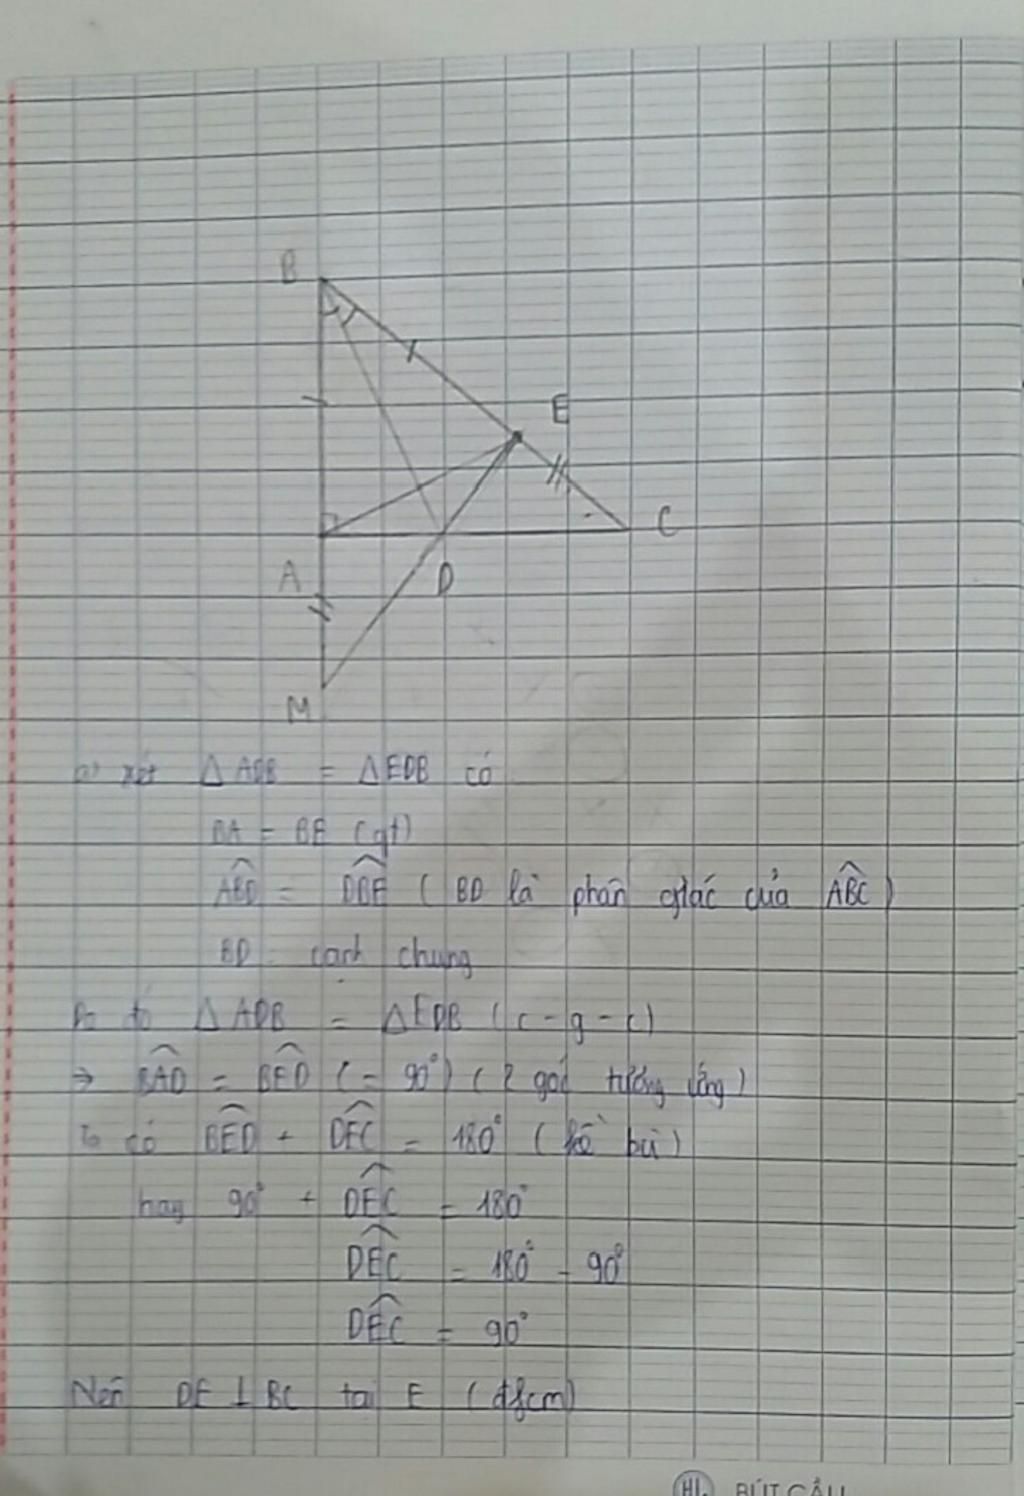 B
E
C
A
D
M
a) xét △ADB = △EDB có
BA = BE (gt)
ABD = DBE ( BD là phân giác của ABC )
BD cạnh chung
Do đó △ADB = △EDB ( c - g - c )
⇒ BAD = BED ( = 90° ) ( 2 góc tương ứng )
Ta có BED + DEC = 180° ( kề bù )
hay 90° + DEC = 180°
DEC = 180° - 90°
DEC = 90°
Nên DE ⊥ BC tại E ( đfcm )
BÚT